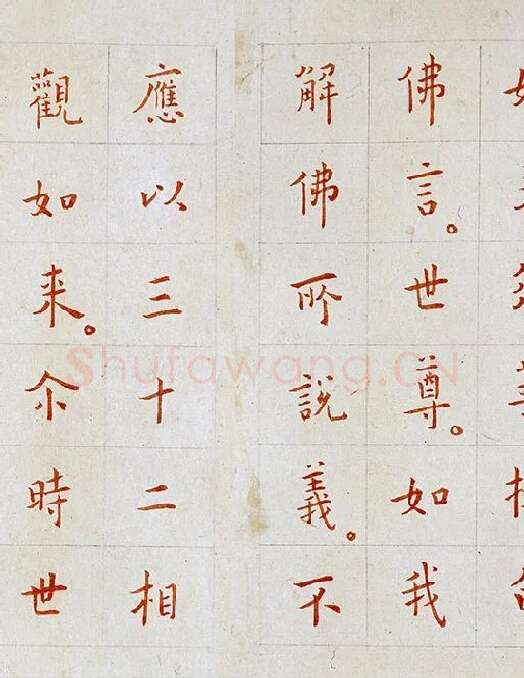 佛言。世尊。如我
解佛所說義。不
應以三十二相
觀如来。尒時世
Shufawang.CN